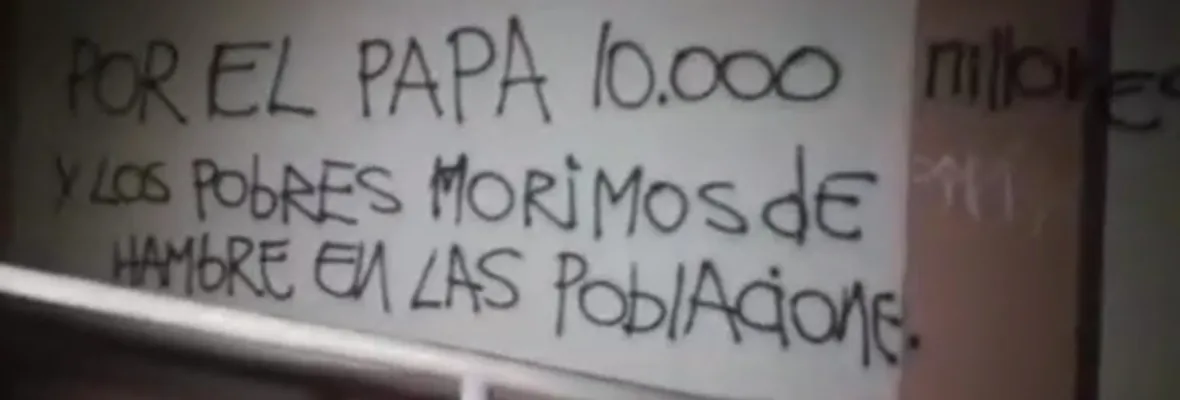 POR EL PAPA 10.000 millones
Y LOS PObRES MORiMOS dE
HAMbRE EN LAS PoblAcione.